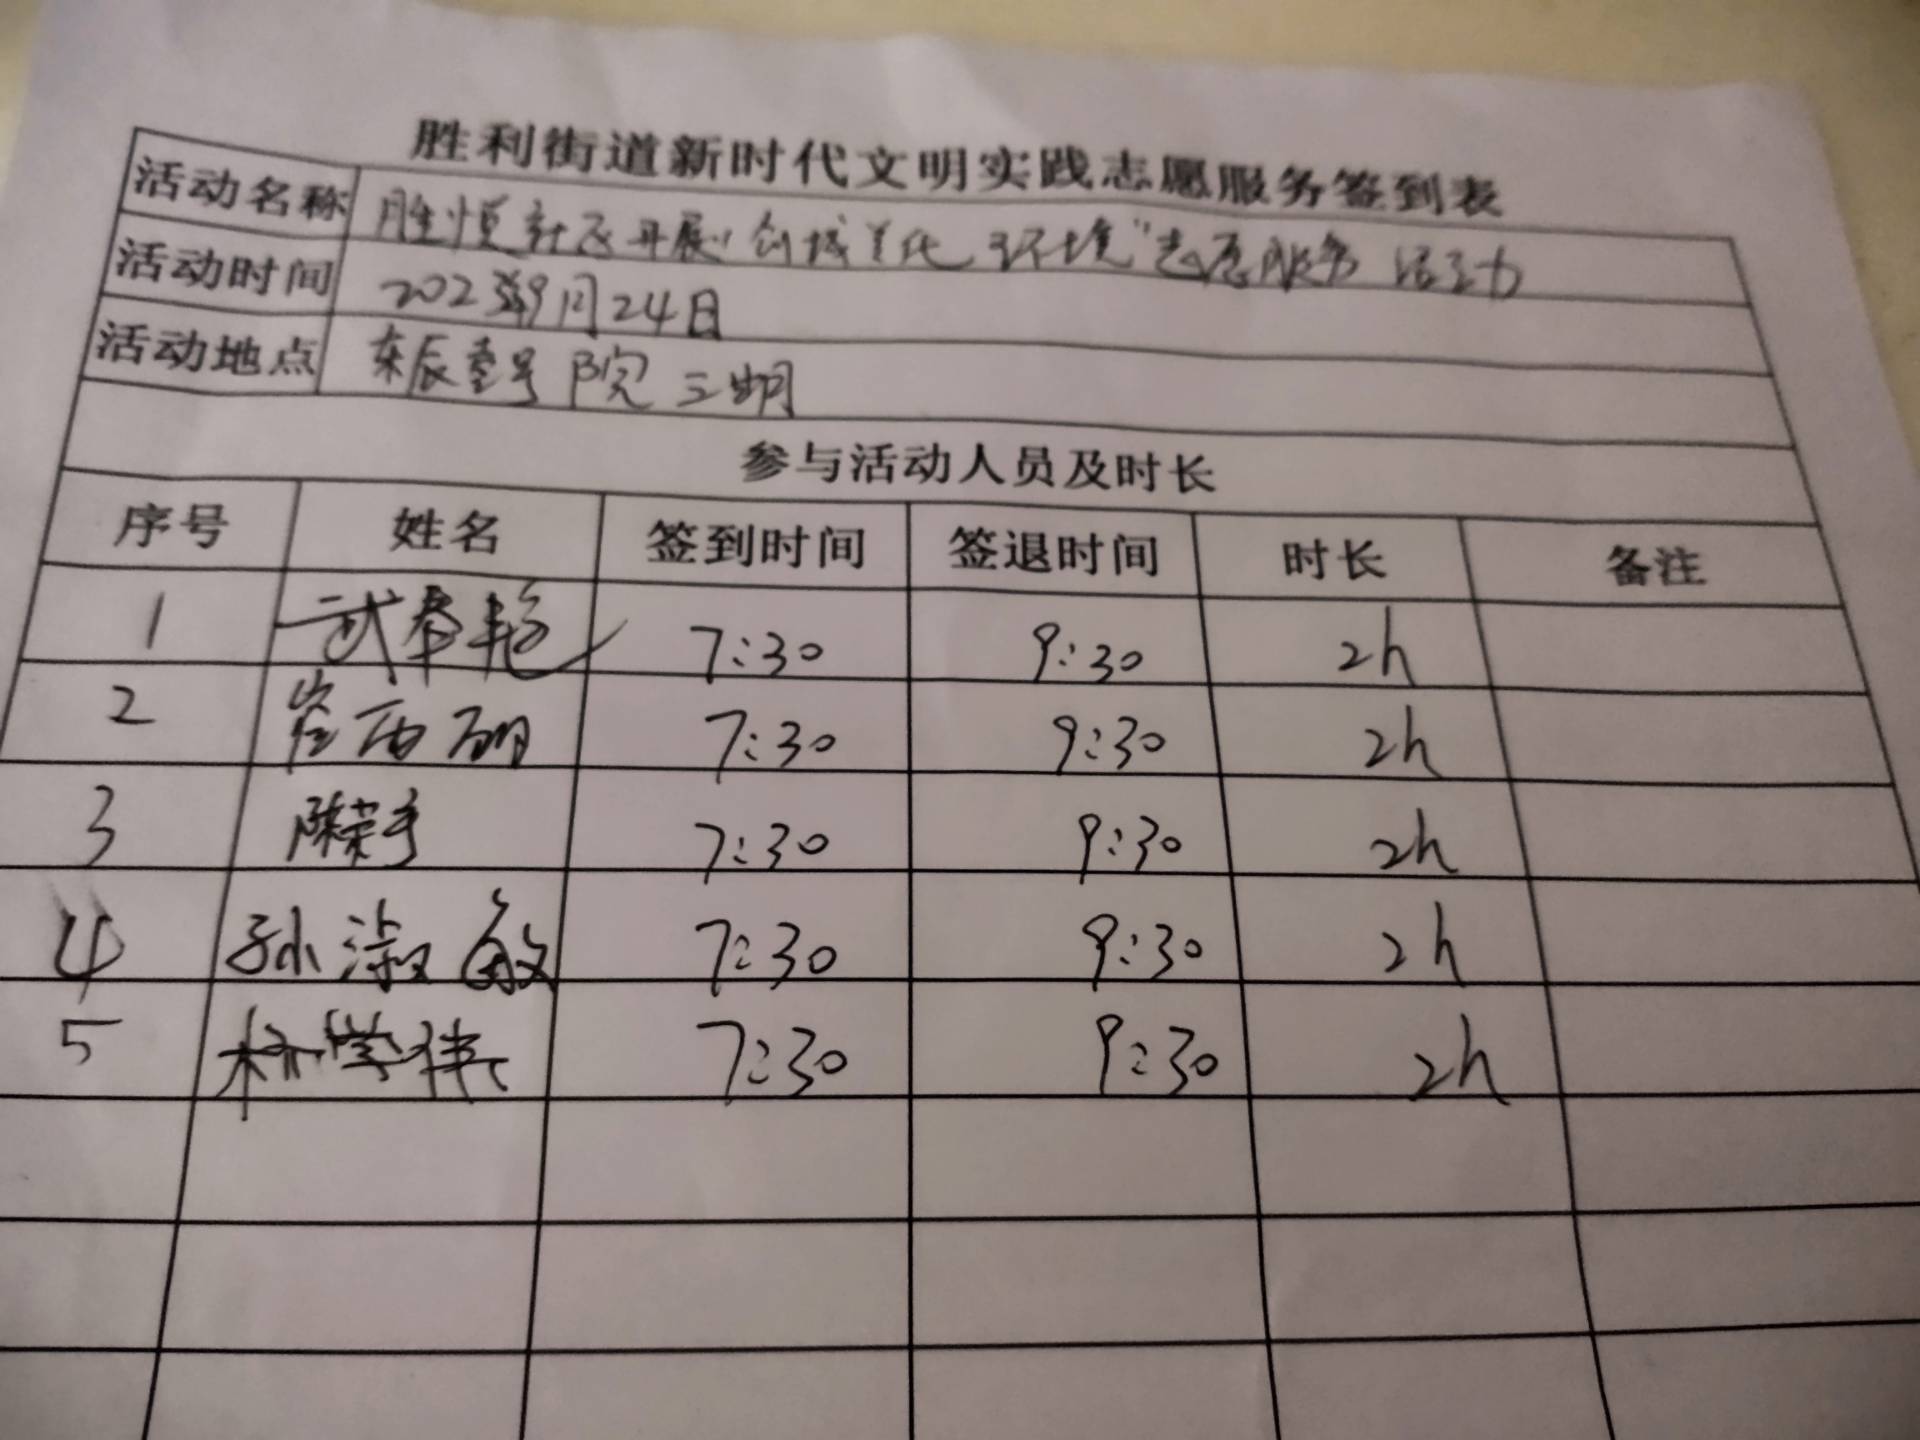 胜利街道新时代文明实践志愿服务签到表
活动名称 胜悦社区开展"创城美化环境"志愿服务活动
活动时间 2023年9月24日
活动地点 东辰壹号院三期
参与活动人员及时长
序号 姓名 签到时间 签退时间 时长 备注
1 武春艳 7:30 9:30 2h
2 崔西 7:30 9:30 2h
3 陈荣 7:30 9:30 2h
4 孙淑敏 7:30 9:30 2h
5 学伟 7:30 9:30 2h